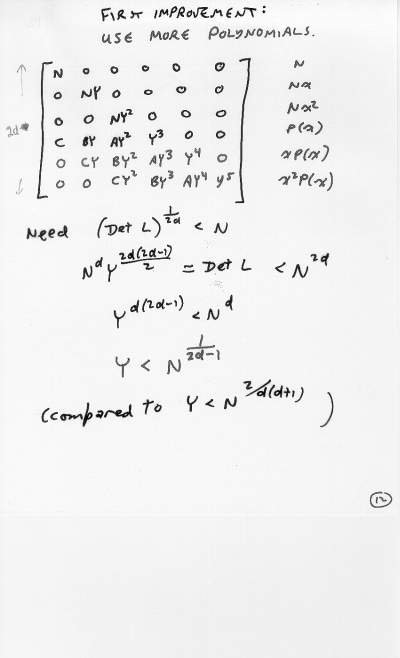 FIRST IMPROVEMENT:
USE MORE POLYNOMIALS.
N 0 0 0 0 0 N
0 NY 0 0 0 0 Nx
0 0 NY² 0 0 0 Nx²
2d C BY AY² Y³ 0 0 P(x)
0 CY BY² AY³ Y⁴ 0 xP(x)
0 0 CY² BY³ AY⁴ Y⁵ x²P(x)
Need (Det L)^{1/2d} < N
N^d Y^{2d(2d-1)/2} = Det L < N^{2d}
Y^{d(2d-1)} < N^d
Y < N^{1/2d-1}
(compared to Y < N^{2/d(d+1)})
12